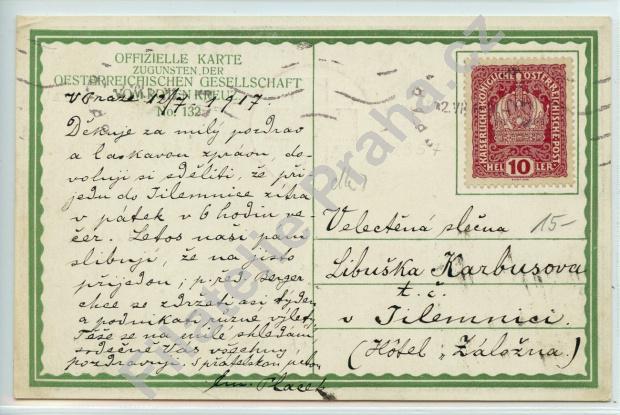 OFFIZIELLE KARTE
ZUGUNSTEN DER
OESTERREICHISCHEN GESELLSCHAFT
VOM ROTEN KREUZ
No. 132
V Praze 12/7 1917
Děkuje za milý pozdrav
a laskavou zprávu, do-
voluji si sděliti, že při-
jedu do Jilemnice zítra
v pátek v 6 hodin ve-
čer. Letos naši páni
slibují, že na jisto
přijedou; p. řed. Berger
chce se zdržeti asi týden
a podnikati různé výlety
Těše se na milé shledání
srdečně Vás všechny
pozdravuji. S přátelským
Placek
KAISERLICHE KÖNIGLICHE ÖSTERREICHISCHE POST
HEL 10 LER
12.VII
15-
Velectěná slečna
Libuška Karbusova
t. č.
v Jilemnici.
(Hôtel „Záložna")
Filatelie Praha.cz